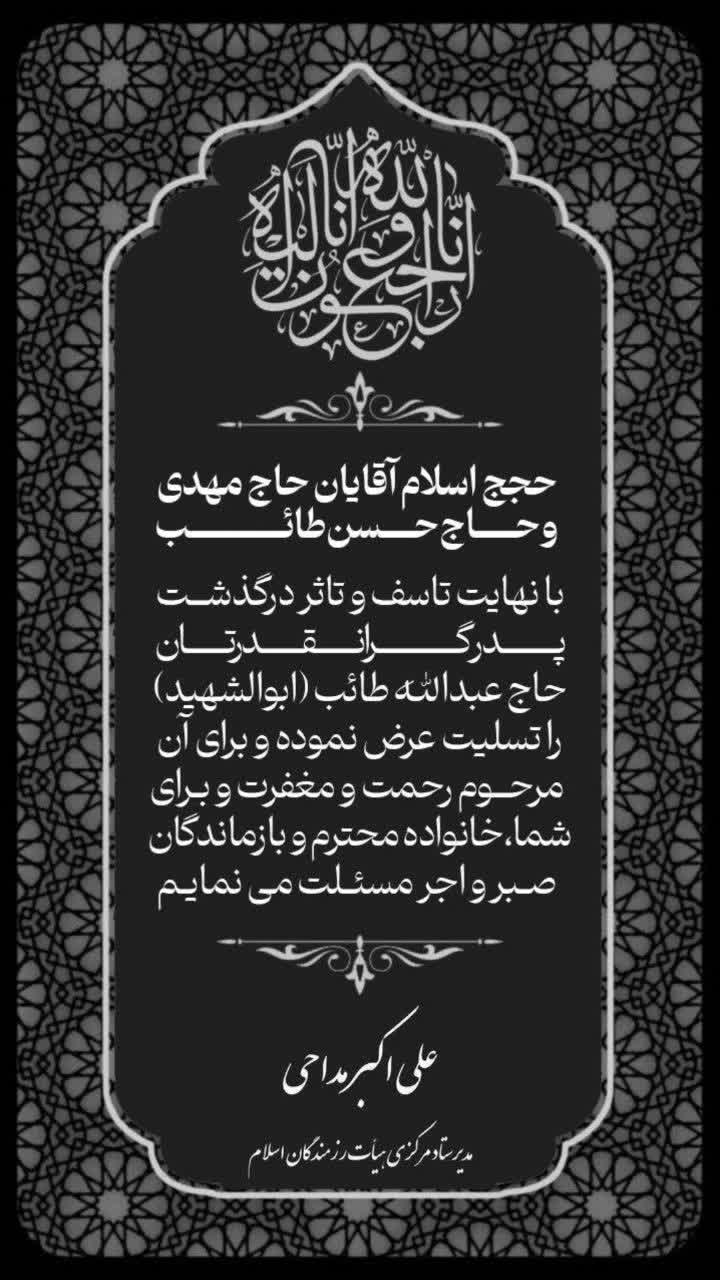 انا لله و انا الیه راجعون
حجج اسلام آقایان حاج مهدی
و حاج حسن طائب
با نهایت تاسف و تاثر درگذشت
پدر گرانقدرتان
حاج عبدالله طائب (ابوالشهید)
را تسلیت عرض نموده و برای آن
مرحوم رحمت و مغفرت و برای
شما، خانواده محترم و بازماندگان
صبر و اجر مسئلت می نمایم
علی اکبر مداحی
مدیر ستاد مرکزی هیأت رزمندگان اسلام